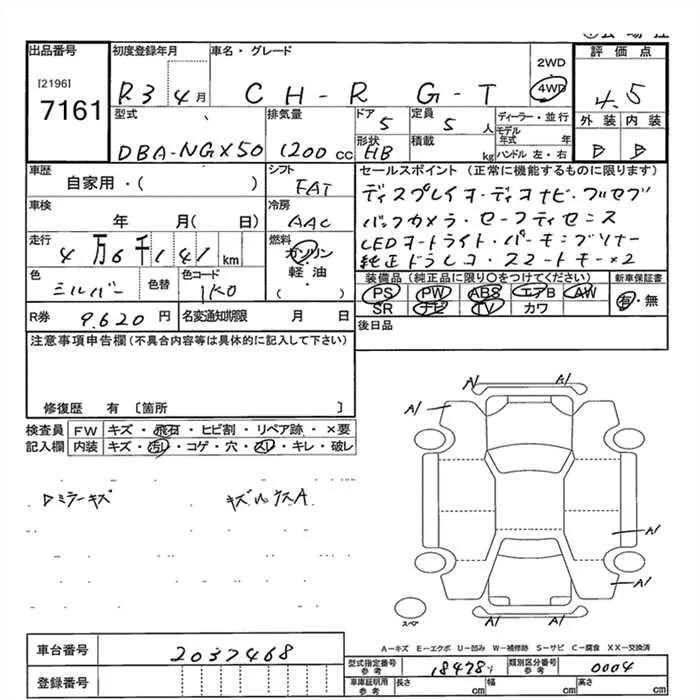 出品番号
[2196]
7161
初度登録年月
R3 4月
車名・グレード
CH-R G-T
2WD
4WD
評価点
4.5
外装 内装
B B
型式
DBA-NGX50
排気量
1200cc
ドア
5
定員
5人
ディーラー・並行
モデル年式 年
形状
HB
積載
kg
ハンドル 左・右
車歴
自家用・( )
シフト
FAT
車検
年 月( 日)
冷房
AAC
走行
4万6千141km
燃料
ガソリン
軽油
( )
色
シルバー
色替
色コード
1K0
R券 9.620円
名変通知期限 月 日
セールスポイント(正常に機能するものに限ります)
ディスプレイオーディオナビ・フルセグ
バックカメラ・セーフティセンス
LEDオートライト・パーキングソナー
純正ドラレコ・スマートキー×2
装備品(純正品に限り○をつけてください)
新車保証書
PS PW ABS エアB AW
有・無
SR ナビ TV カワ
後日品
注意事項申告欄(不具合内容等は具体的に記入して下さい)
修復歴 有〔箇所 〕
検査員記入欄
FW キズ・飛石・ヒビ割・リペア跡・×要
内装 キズ・汚レ・コゲ・穴・スレ・キレ・破レ
A1 A1
A1
A1
A1
A1 A1
スペア
A-キズ E-エクボ U-凹み W-補修跡 S-サビ C-腐食 XX-交換済
車台番号 2037468
登録番号
型式指定番号 参考 18478
類別区分番号 参考 0004
車庫証明用 参考 長さ cm 幅 cm 高さ cm